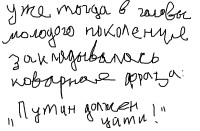 уже тогда в головы
молодого поколение
закладывалась
коварная фраза:
"Путин должен
уйти!"